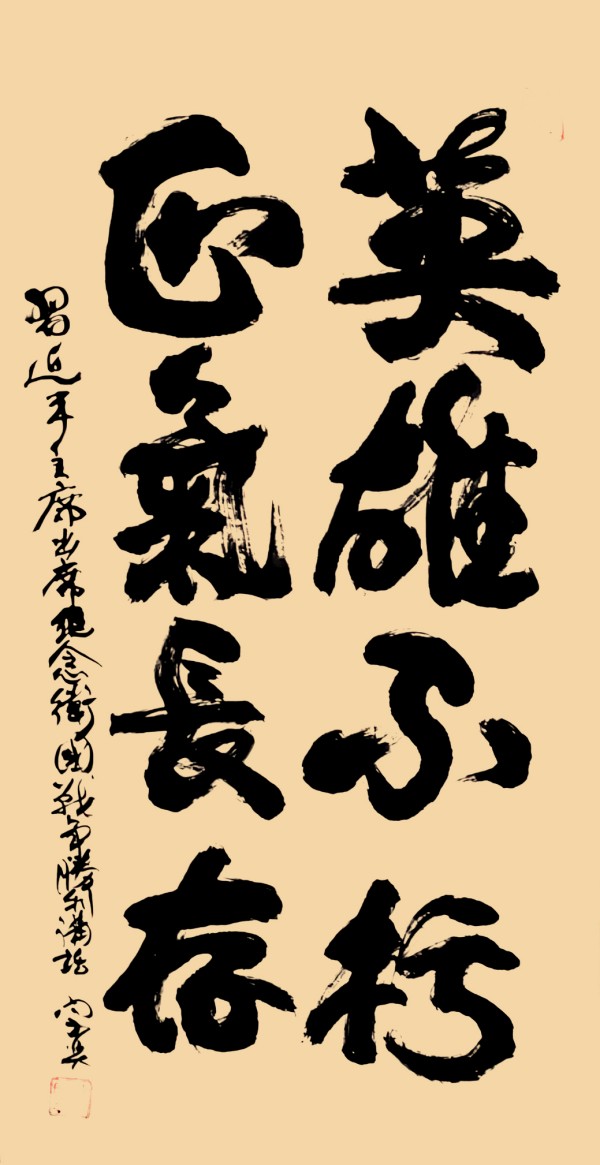 英雄不朽
正氣長存
習近平主席出席紀念衛國戰爭勝利講話